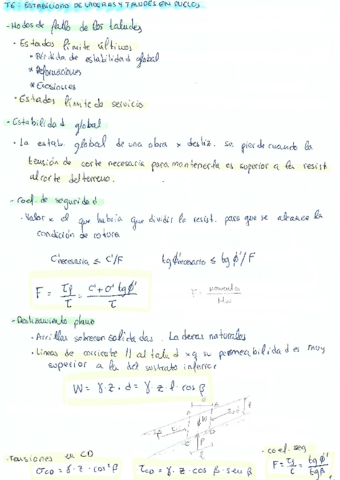 T6: ESTABILIDAD DE LADERAS Y TALUDES EN SUELOS
- Modos de fallo de los taludes
• Estados límite últimos
* Pérdida de estabilidad global
* Deformaciones
* Erosiones
• Estados límite de servicio
- Estabilidad global
• La estab. global de una obra x desliz. se pierde cuando la
tensión de corte necesaria para mantenerla es superior a la resist
al corte del terreno.
- Coef. de seguridad
• Valor x el que habría que dividir la resist. para que se alcance la
condición de rotura
C'necesaria ≤ C'/F tgϕ'necesario ≤ tgϕ'/F
F = τf/τ = (c'+σ' tgϕ')/τ
F =
- Deslizamiento plano
• Arcillas sobreconsolidadas. Laderas naturales
• Líneas de corriente // al talud xq su permeabilidad es muy
superior a la del sustrato inferior
W = γ·z·d = γ·z·l·cos β
- Tensiones en CD
σCD = γ·z·cos²β τCD = γ·z·cos β·sen β
- coef. seg
F = τf/τ = tgϕ'/tgβ